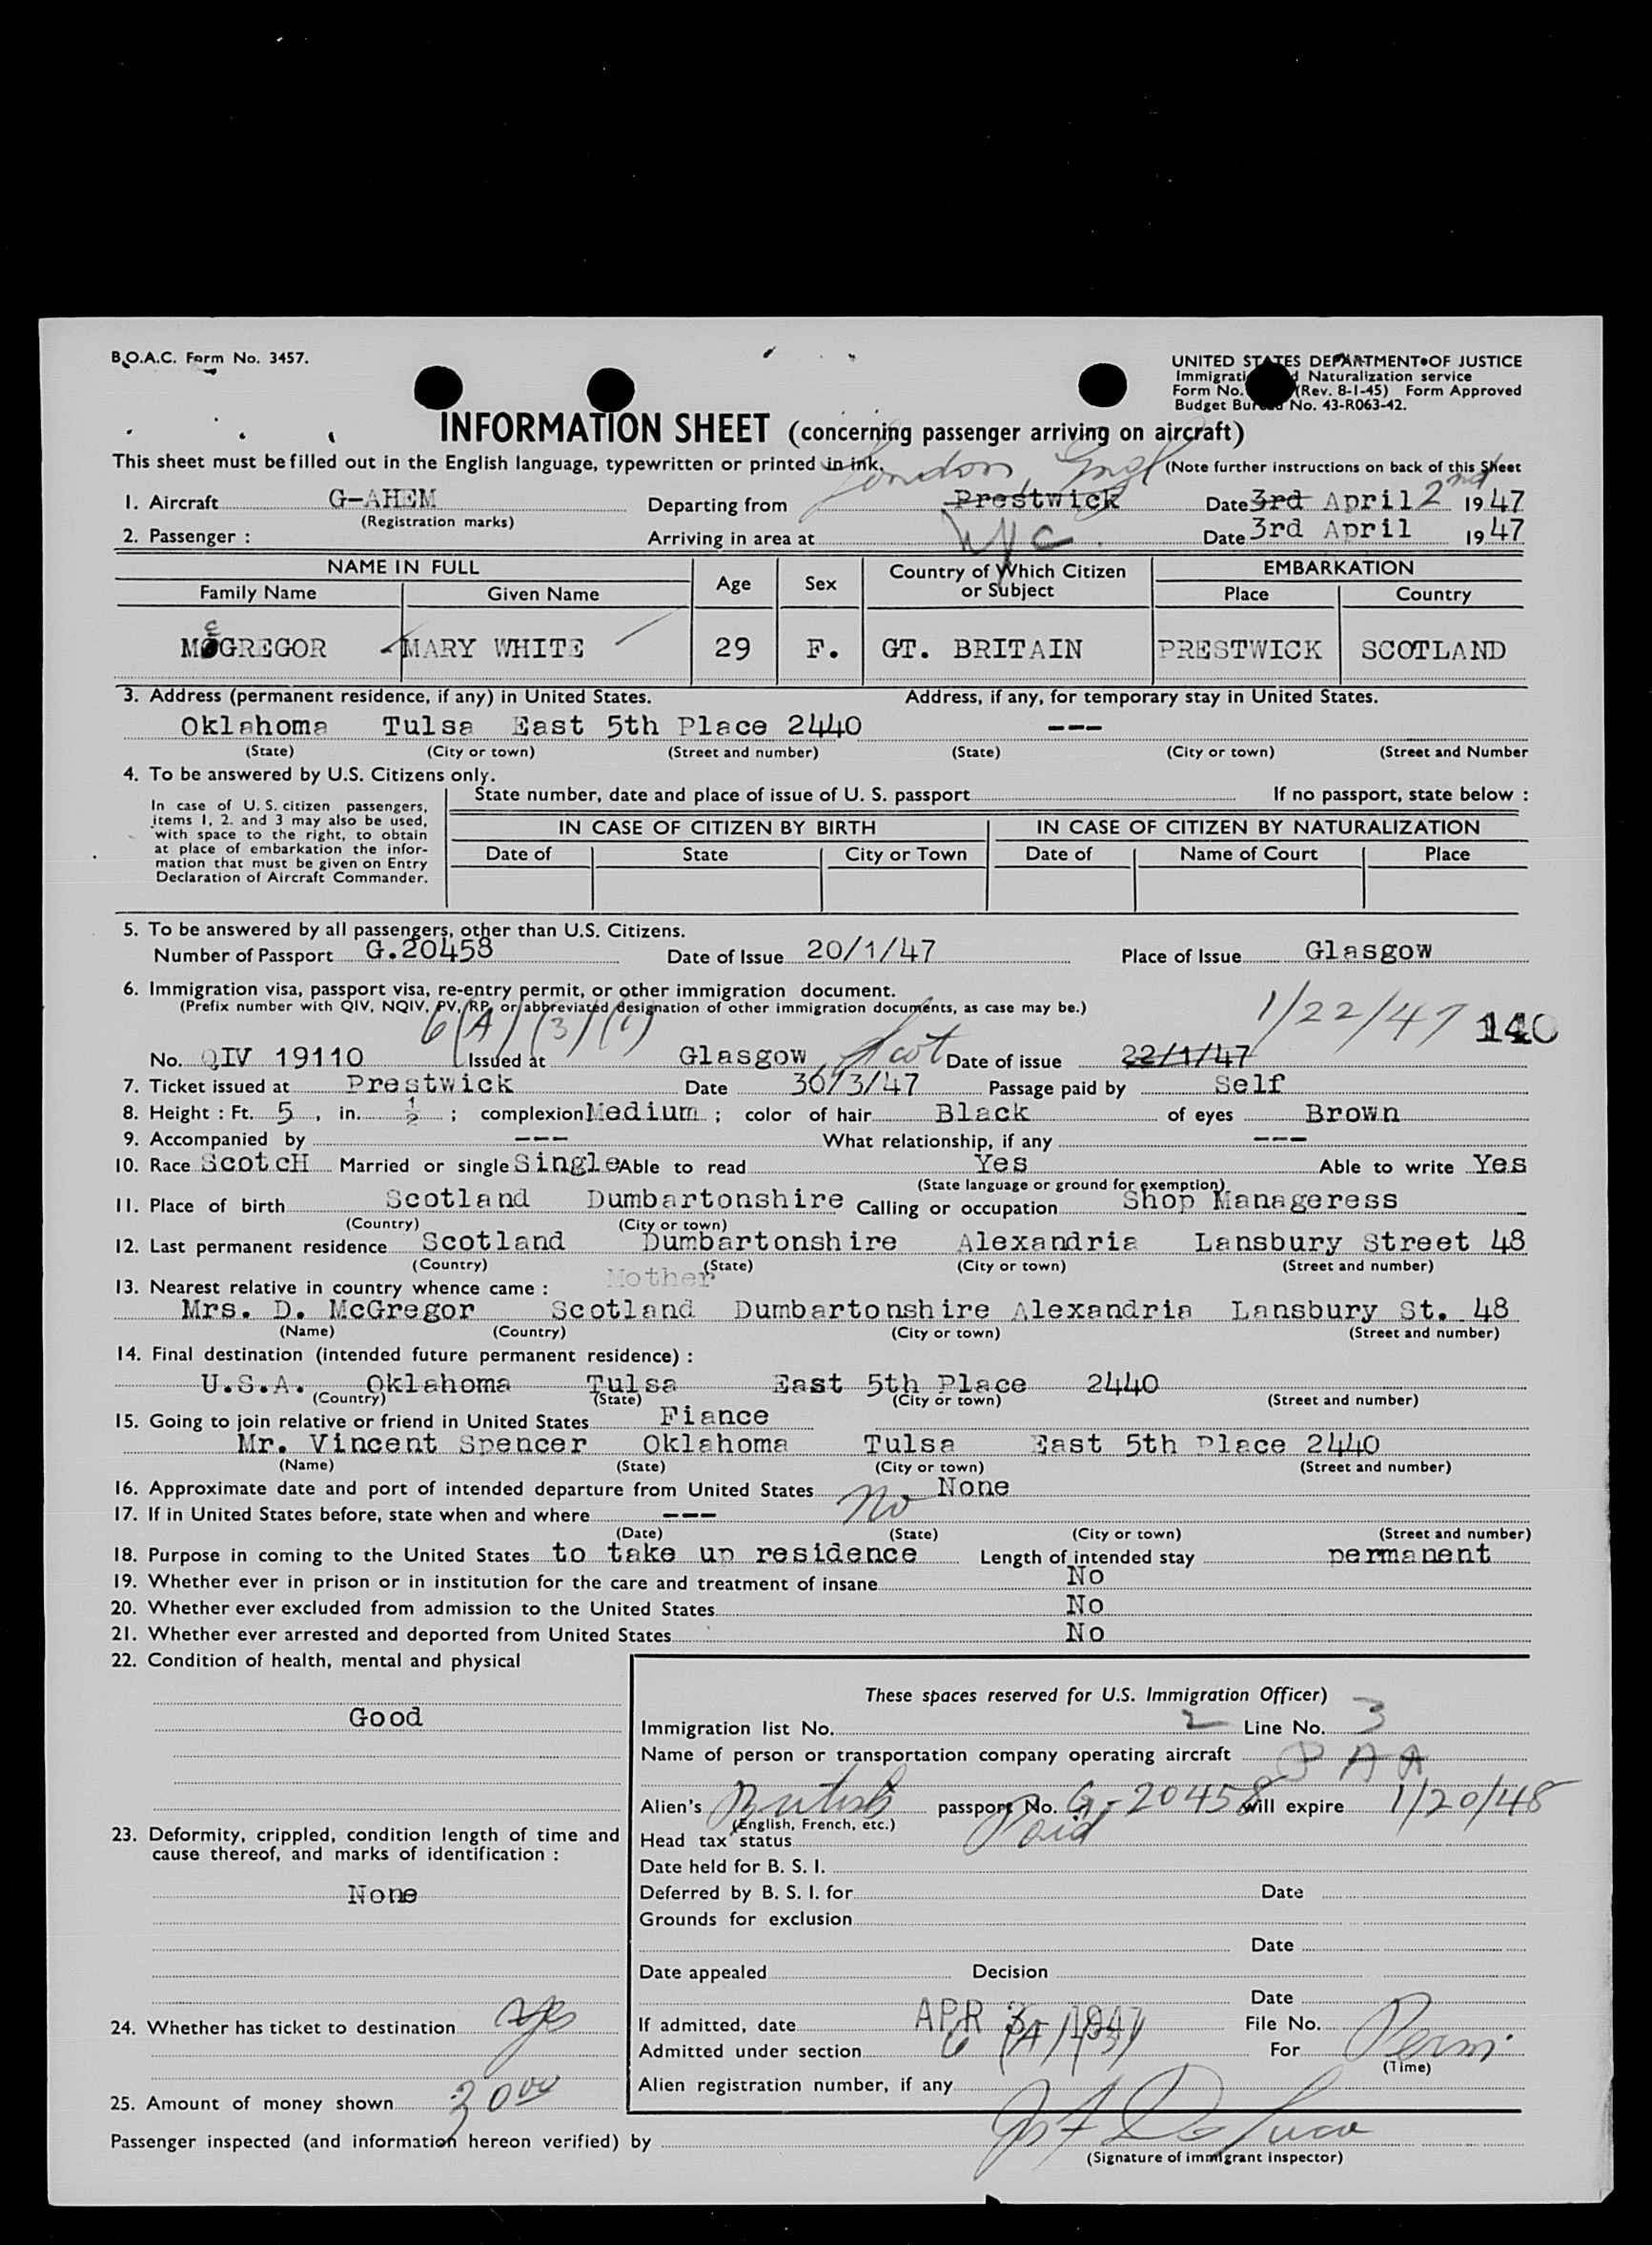 B.O.A.C. Form No. 3457.
UNITED STATES DEPARTMENT OF JUSTICE
Immigrati d Naturalization service
Form No. (Rev. 8-1-45) Form Approved
Budget Bureau No. 43-R063-42.
INFORMATION SHEET (concerning passenger arriving on aircraft)
This sheet must be filled out in the English language, typewritten or printed in ink. (Note further instructions on back of this Sheet
London, Engl
1. Aircraft G-AHEM Departing from Prestwick Date 3rd April 2nd 1947
(Registration marks)
2. Passenger : Arriving in area at NYC. Date 3rd April 1947
NAME IN FULL Age Sex Country of Which Citizen or Subject EMBARKATION
Family Name Given Name Place Country
McGREGOR MARY WHITE 29 F. GT. BRITAIN PRESTWICK SCOTLAND
3. Address (permanent residence, if any) in United States. Address, if any, for temporary stay in United States.
Oklahoma Tulsa East 5th Place 2440 ---
(State) (City or town) (Street and number) (State) (City or town) (Street and Number
4. To be answered by U.S. Citizens only.
In case of U.S. citizen passengers, items 1, 2. and 3 may also be used, with space to the right, to obtain at place of embarkation the information that must be given on Entry Declaration of Aircraft Commander.
State number, date and place of issue of U. S. passport If no passport, state below :
IN CASE OF CITIZEN BY BIRTH IN CASE OF CITIZEN BY NATURALIZATION
Date of State City or Town Date of Name of Court Place
5. To be answered by all passengers, other than U.S. Citizens.
Number of Passport G.20458 Date of Issue 20/1/47 Place of Issue Glasgow
6. Immigration visa, passport visa, re-entry permit, or other immigration document.
(Prefix number with QIV, NQIV, PV, RP, or abbreviated designation of other immigration documents, as case may be.)
6(A)(3)(1) 1/22/47 140
No. QIV 19110 Issued at Glasgow, Scot Date of issue 22/1/47
7. Ticket issued at Prestwick Date 30/3/47 Passage paid by Self
8. Height : Ft. 5, in. ½ ; complexion Medium ; color of hair Black of eyes Brown
9. Accompanied by --- What relationship, if any ---
10. Race ScotcH Married or single Single Able to read Yes Able to write Yes
(State language or ground for exemption)
11. Place of birth Scotland Dumbartonshire Calling or occupation Shop Manageress
(Country) (City or town)
12. Last permanent residence Scotland Dumbartonshire Alexandria Lansbury Street 48
(Country) (State) (City or town) (Street and number)
13. Nearest relative in country whence came : Mother
Mrs. D. McGregor Scotland Dumbartonshire Alexandria Lansbury St. 48
(Name) (Country) (City or town) (Street and number)
14. Final destination (intended future permanent residence) :
U.S.A. Oklahoma Tulsa East 5th Place 2440
(Country) (State) (City or town) (Street and number)
15. Going to join relative or friend in United States Fiance
Mr. Vincent Spencer Oklahoma Tulsa East 5th Place 2440
(Name) (State) (City or town) (Street and number)
16. Approximate date and port of intended departure from United States None
17. If in United States before, state when and where --- No
(Date) (State) (City or town) (Street and number)
18. Purpose in coming to the United States to take up residence Length of intended stay permanent
19. Whether ever in prison or in institution for the care and treatment of insane No
20. Whether ever excluded from admission to the United States No
21. Whether ever arrested and deported from United States No
22. Condition of health, mental and physical
Good
These spaces reserved for U.S. Immigration Officer)
Immigration list No. 2 Line No. 3
Name of person or transportation company operating aircraft P A A
Alien's British passport No. G-20458 will expire 1/20/48
(English, French, etc.)
23. Deformity, crippled, condition length of time and cause thereof, and marks of identification :
None
Head tax status Paid
Date held for B. S. I.
Deferred by B. S. I. for Date
Grounds for exclusion
Date
Date appealed Decision
Date
24. Whether has ticket to destination Yes
If admitted, date APR 3 - 1947 File No.
Admitted under section 6(A)(3) For Perm.
(Time)
Alien registration number, if any
25. Amount of money shown 30 00
Passenger inspected (and information hereon verified) by
(Signature of immigrant inspector)